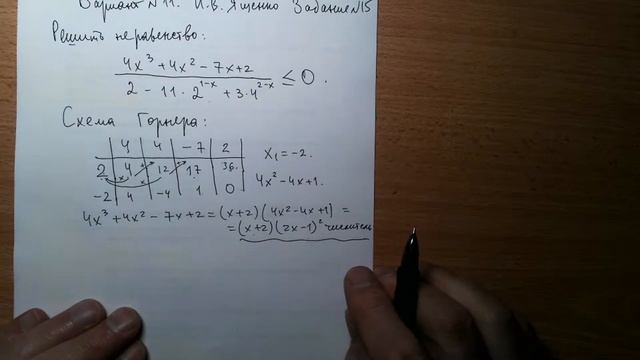 Вариант №11. И.В. Ященко Задание №15
Решить неравенство:
4x³ + 4x² - 7x + 2
2 - 11 · 2¹⁻ˣ + 3 · 4²⁻ˣ ≤ 0.
Схема Горнера:
4 4 -7 2
2 4 12 17 36
-2 4 -4 1 0
x₁ = -2.
4x² - 4x + 1.
4x³ + 4x² - 7x + 2 = (x+2)(4x² - 4x + 1) =
= (x+2)(2x-1)² числитель